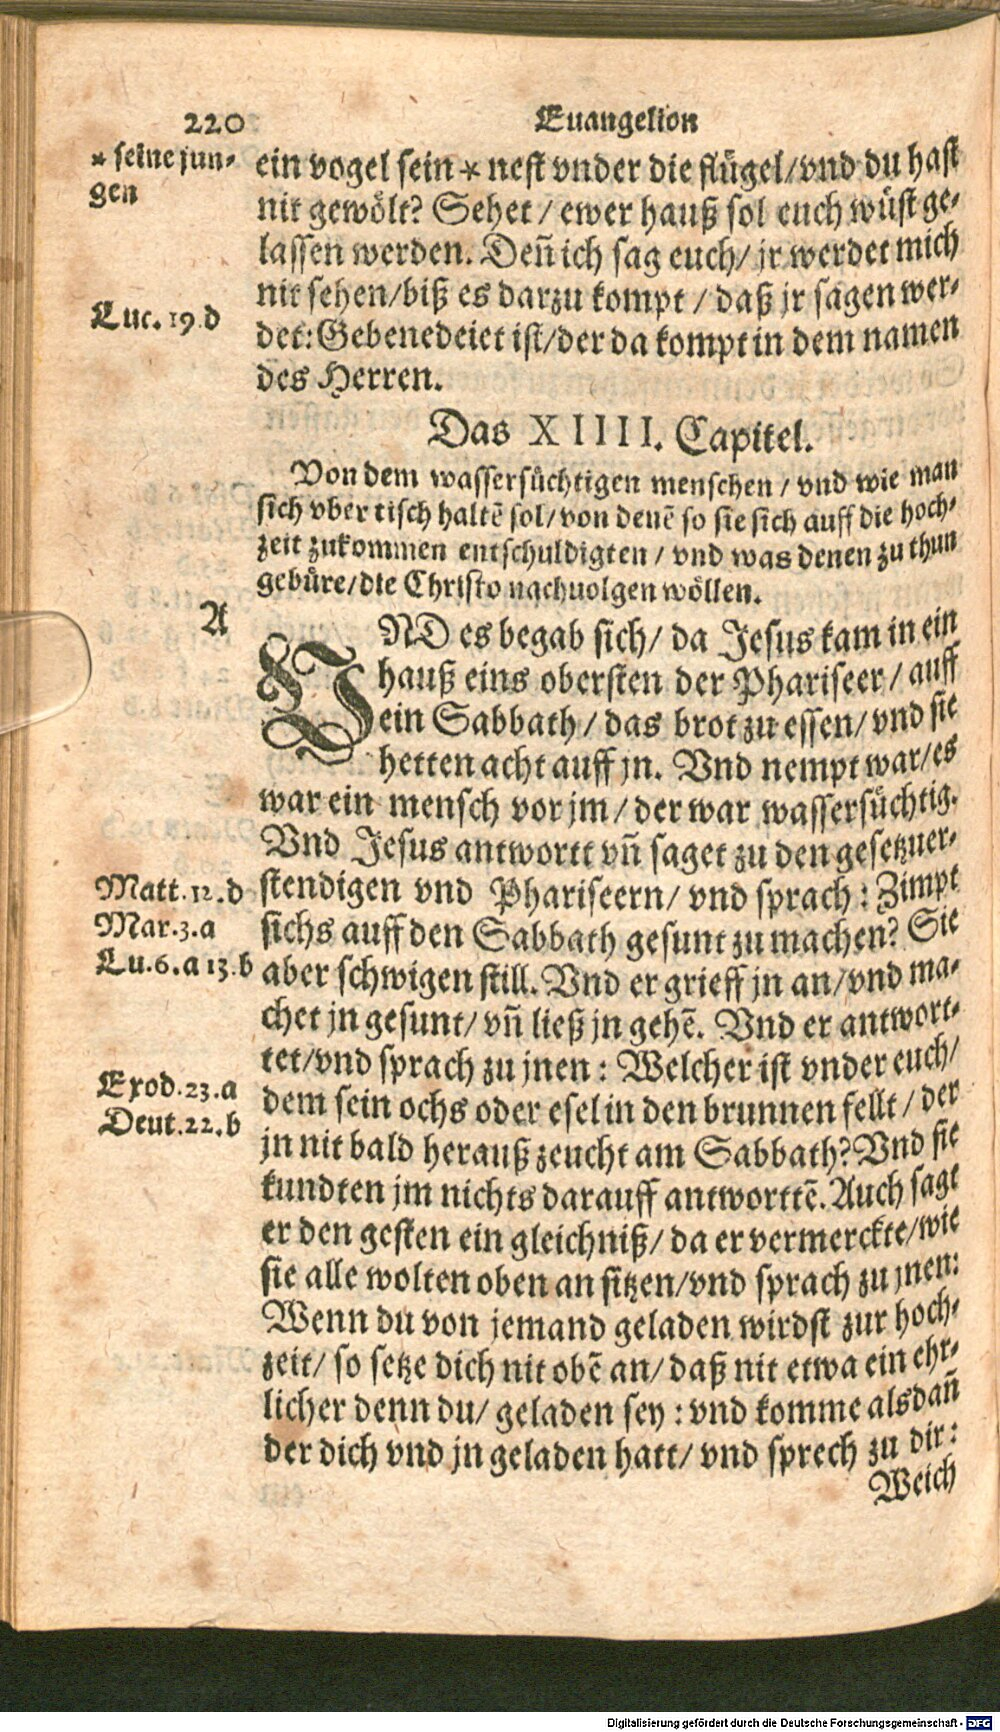 220
Euangelion
* seine jun-
gen
ein vogel sein * nest vnder die flügel/vnd du hast
nit gewölt? Sehet / ewer hauß sol euch wüst ge-
lassen werden. Deñ ich sag euch/ jr werdet mich
nit sehen/biß es darzu kompt / daß jr sagen wer-
Luc. 19.d
det: Gebenedeiet ist/der da kompt in dem namen
des Herren.
Das XIIII. Capitel.
Von dem wassersüchtigen menschen / vnd wie man
sich vber tisch haltẽ sol/von denẽ so sie sich auff die hoch-
zeit zukommen entschuldigten / vnd was denen zu thun
gebüre/die Christo nachuolgen wöllen.
A
VND es begab sich/ da Jesus kam in ein
hauß eins obersten der Phariseer / auff
ein Sabbath / das brot zu essen/ vnd sie
hetten acht auff jn. Vnd nempt war/es
war ein mensch vor jm / der war wassersüchtig.
Vnd Jesus antwortt vñ saget zu den gesetzuer-
Matt. 12. d
stendigen vnd Phariseern/ vnd sprach: Zimpt
Mar. 3. a
sichs auff den Sabbath gesunt zu machen? Sie
Lu. 6. a 13. b
aber schwigen still. Vnd er grieff jn an/vnd ma-
chet jn gesunt/ vñ ließ jn gehẽ. Vnd er antwort-
tet/vnd sprach zu jnen: Welcher ist vnder euch/
Exod. 23. a
dem sein ochs oder esel in den brunnen fellt / der
Deut. 22. b
jn nit bald herauß zeucht am Sabbath? Vnd sie
kundten jm nichts darauff antworttẽ. Auch sagt
er den gesten ein gleichniß/ da er vermerckte/wie
sie alle wolten oben an sitzen/vnd sprach zu jnen:
Wenn du von jemand geladen wirdst zur hoch-
zeit/ so setze dich nit obẽ an/ daß nit etwa ein ehr-
licher denn du/ geladen sey : vnd komme alsdañ
der dich vnd jn geladen hatt/ vnd sprech zu dir:
Weich
Digitalisierung gefördert durch die Deutsche Forschungsgemeinschaft - DFG